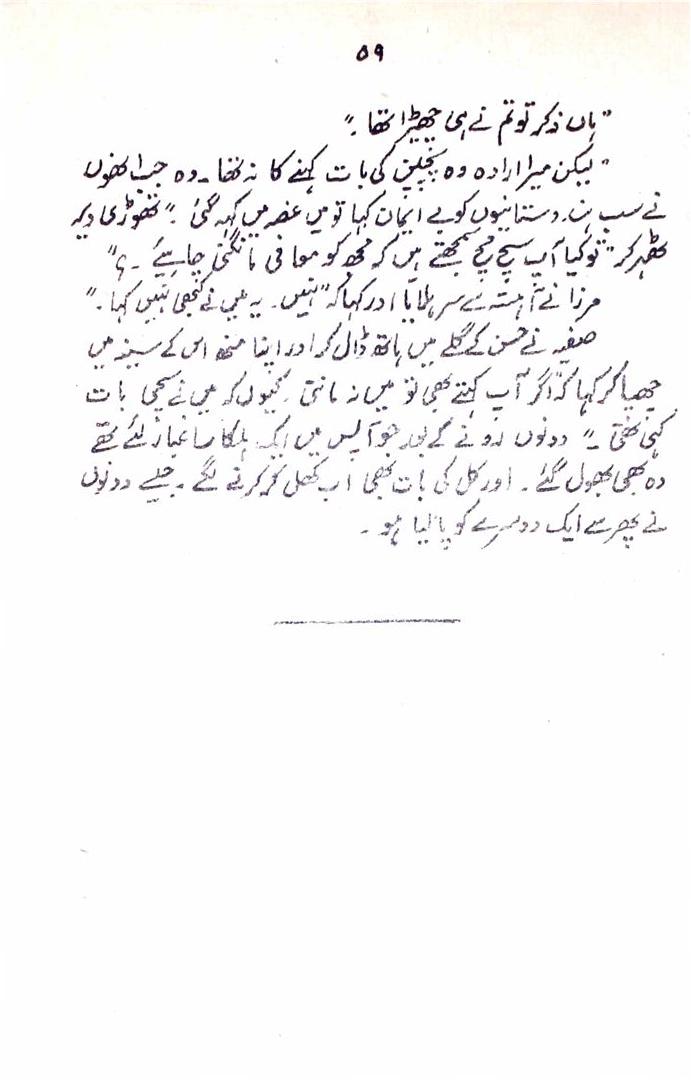 ۵۹
"ہاں ذکر تو تم نے ہی چھیڑا تھا۔"
"لیکن میرا ارادہ وہ بچپن کی بات کہنے کا نہ تھا۔ وہ جب انھوں
نے سب ہندوستانیوں کو بے ایمان کہا تو میں غصہ میں کہہ گئی۔" تھوڑی دیر
ٹھہر کر "تو کیا آپ سچ مچ سمجھتے ہیں کہ مجھ کو معافی مانگنی چاہیئے۔؟"
مرزا نے آہستہ سے سر ہلایا اور کہا کہ "نہیں۔ یہ میں نے کبھی نہیں کہا۔"
صفیہ نے حسن کے گلے میں ہاتھ ڈال کر اور اپنا منھ اس کے سینہ میں
چھپا کر کہا کہ "اگر آپ کہتے بھی تو میں نہ مانتی۔ کیوں کہ میں نے سچی بات
کہی تھی۔" دونوں رونے کے بعد جو آپس میں ایک ہلکا سا غبار لئے تھے
وہ بھی بھول گئے۔ اور کل کی بات بھی اب کھل کر کرنے لگے۔ جیسے دونوں
نے پھر سے ایک دوسرے کو پا لیا ہو۔